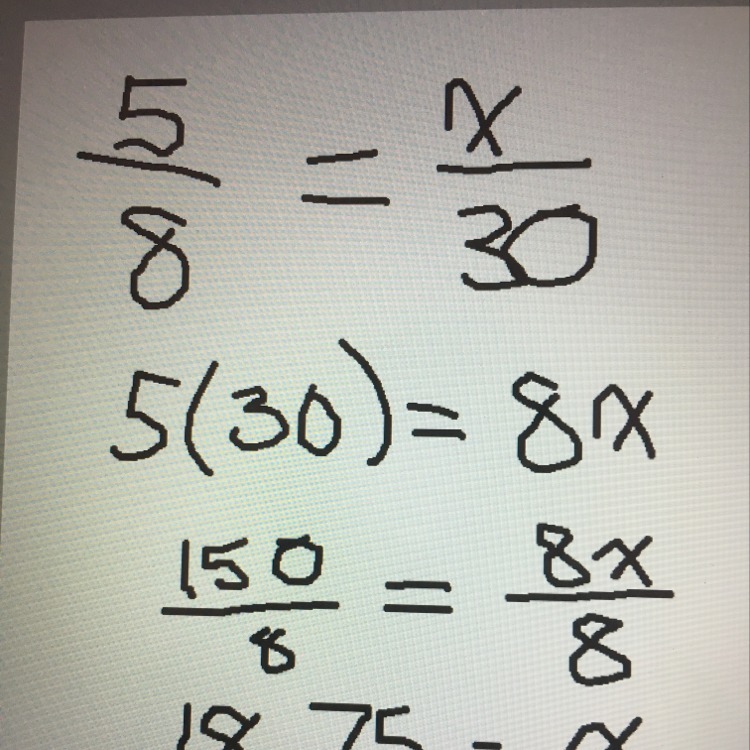 5/8 = x/30
5(30) = 8x
150/8 = 8x/8
18.75 = x